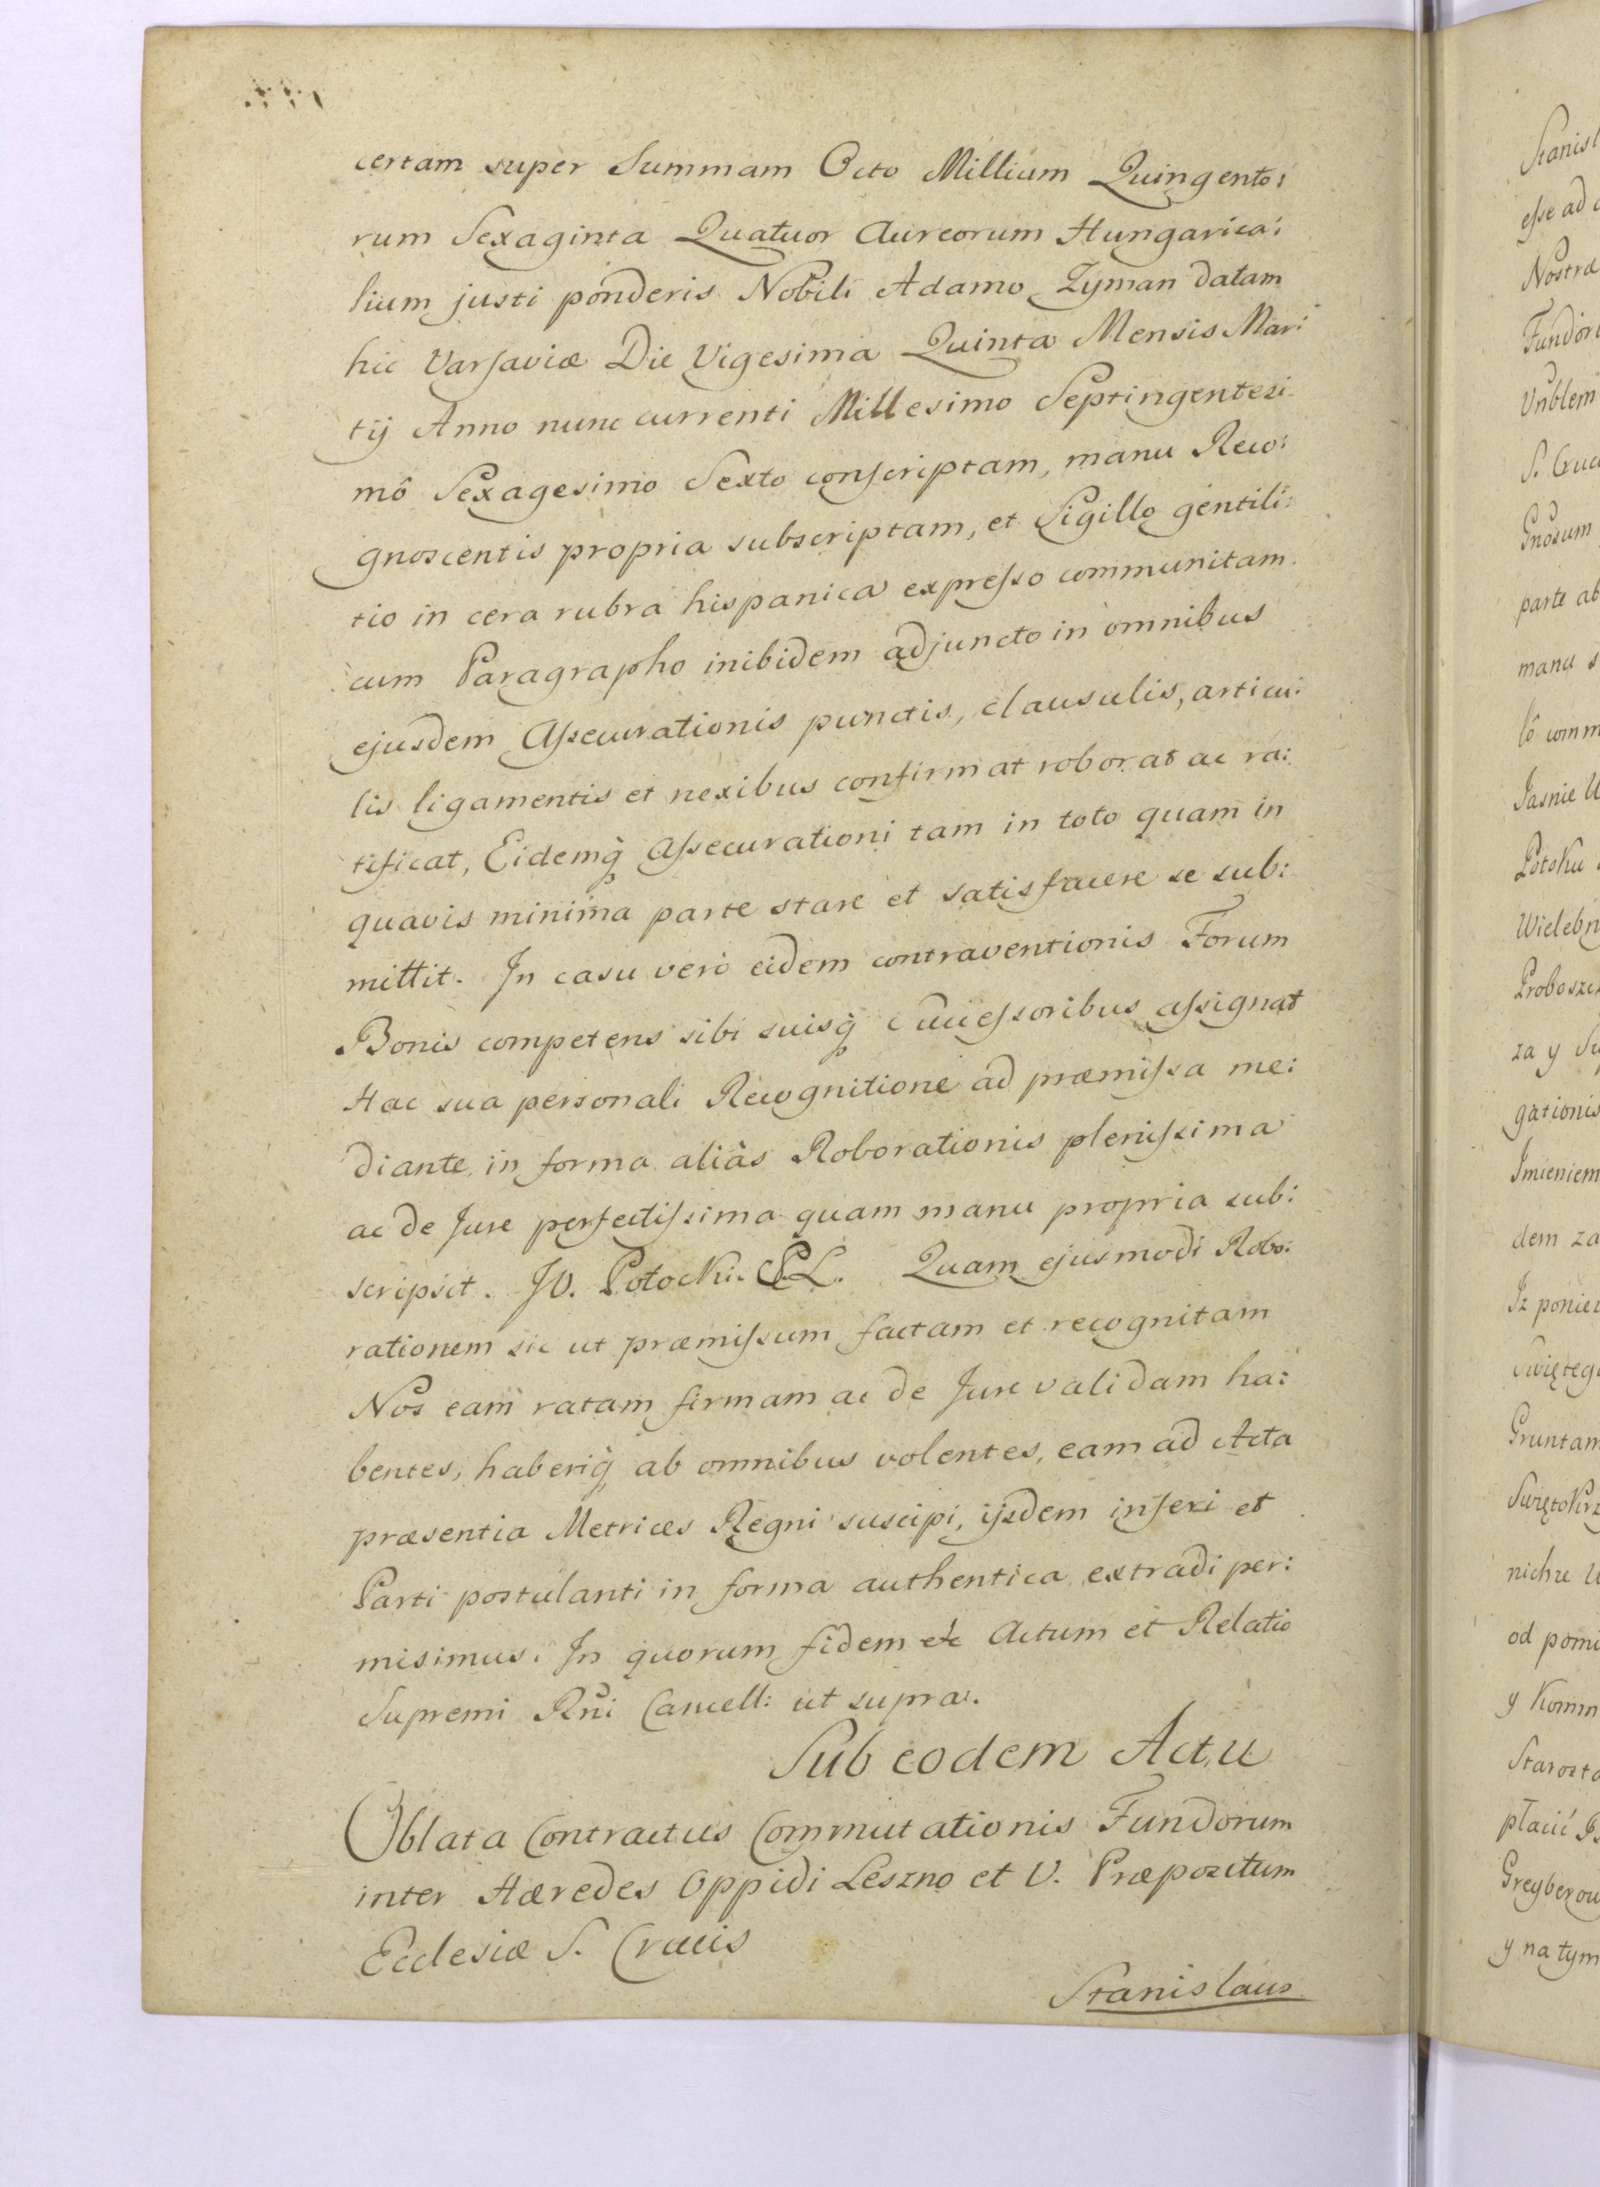 certam super Summam Octo Millium Quingento:
rum Sexaginta Quatuor Aureorum Hungarica:
lium justi ponderis Nobili Adamo Zyman datam
hic Varsaviæ Die Vigesima Quinta Mensis Mar:
tij Anno nunc currenti Millesimo Septingentesi
mô Sexagesimo Sexto conscriptam, manu Reco:
gnoscentis propria subscriptam, et Sigillo gentili:
tio in cera rubra hispanica expresso communitam
cum Paragrapho inibidem adjuncto in omnibus
ejusdem Assecurationis punctis, clausulis, articu:
lis ligamentis et nexibus confirmat roborat ac ra:
tificat, Eidemq̀ Assecurationi tam in toto quam in
quavis minima parte stare et satisfacere se sub:
mittit. In casu verò eidem contraventionis Forum
Bonis competens sibi suisq̀ Successoribus assignat
Hac sua personali Recognitione ad præmissa me:
diante in forma aliàs Roborationis plenissima
ac de Jure perfectissima quam manu propria sub:
scripsit. JW. Potocki. P.L. Quam ejusmodi Robo:
rationem sic ut præmissum factam et recognitam
Nos eam ratam firmam ac de Jure validam ha:
bentes, haberiq̀ ab omnibus volentes, eam ad Acta
præsentia Metrices Regni suscipi, ijsdem inseri et
Parti postulanti in forma authentica extradi per:
misimus. In quorum fidem etc Actum et Relatio
Supremi Rni Cancell: ut supra.
Sub eodem Actu
Oblata Contractus Commutationis Fundorum
inter Hæredes Oppidi Leszno et V. Præpozitum
Ecclesiæ S. Crucis
Stanislaus
esse ad
Nostræ
S. Cruc
parte ab
manu s
lô comm
Jasnie W
Potoku
Wielebn
Proboszcz
za y Su
gationis
Jmieniem
dem za
Iz ponie
Swiętego
Gruntam
Swiętokrz
od pomi
y Komm
Starosta
płacić
y na tym